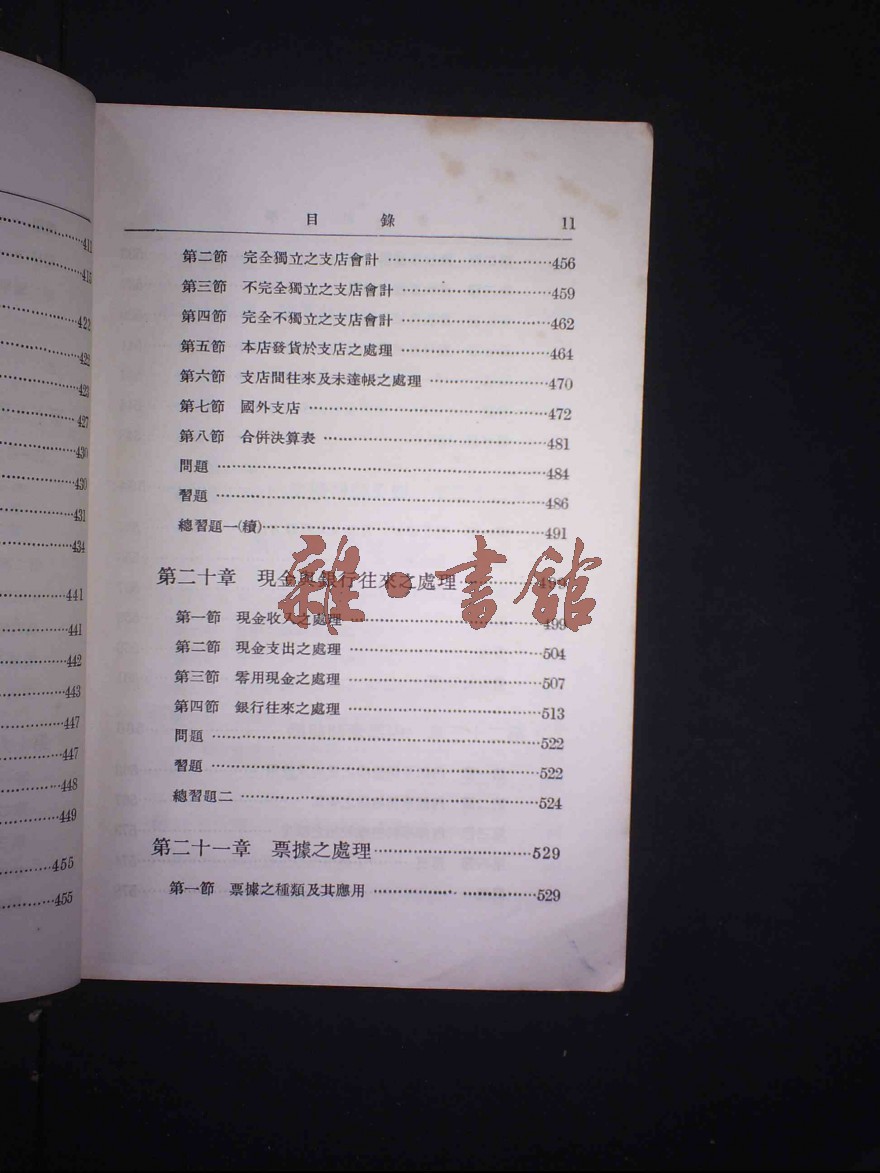 411
415
422
422
423
427
430
430
431
434
441
441
442
443
447
447
448
449
455
455
目 錄 11
第二節 完全獨立之支店會計 ……………………456
第三節 不完全獨立之支店會計 ……………………459
第四節 完全不獨立之支店會計 ……………………462
第五節 本店發貨於支店之處理 ……………………464
第六節 支店間往來及未達帳之處理 ………………470
第七節 國外支店 ……………………………………472
第八節 合併決算表 …………………………………481
問題 ……………………………………………………484
習題 ……………………………………………………486
總習題一(續)……………………………………………491
第二十章 現金與銀行往來之處理 ……………499
第一節 現金收入之處理 ……………………………499
第二節 現金支出之處理 ……………………………504
第三節 零用現金之處理 ……………………………507
第四節 銀行往來之處理 ……………………………513
問題 ……………………………………………………522
習題 ……………………………………………………522
總習題二 ………………………………………………524
第二十一章 票據之處理 ………………………529
第一節 票據之種類及其應用 ………………………529
雜·書館